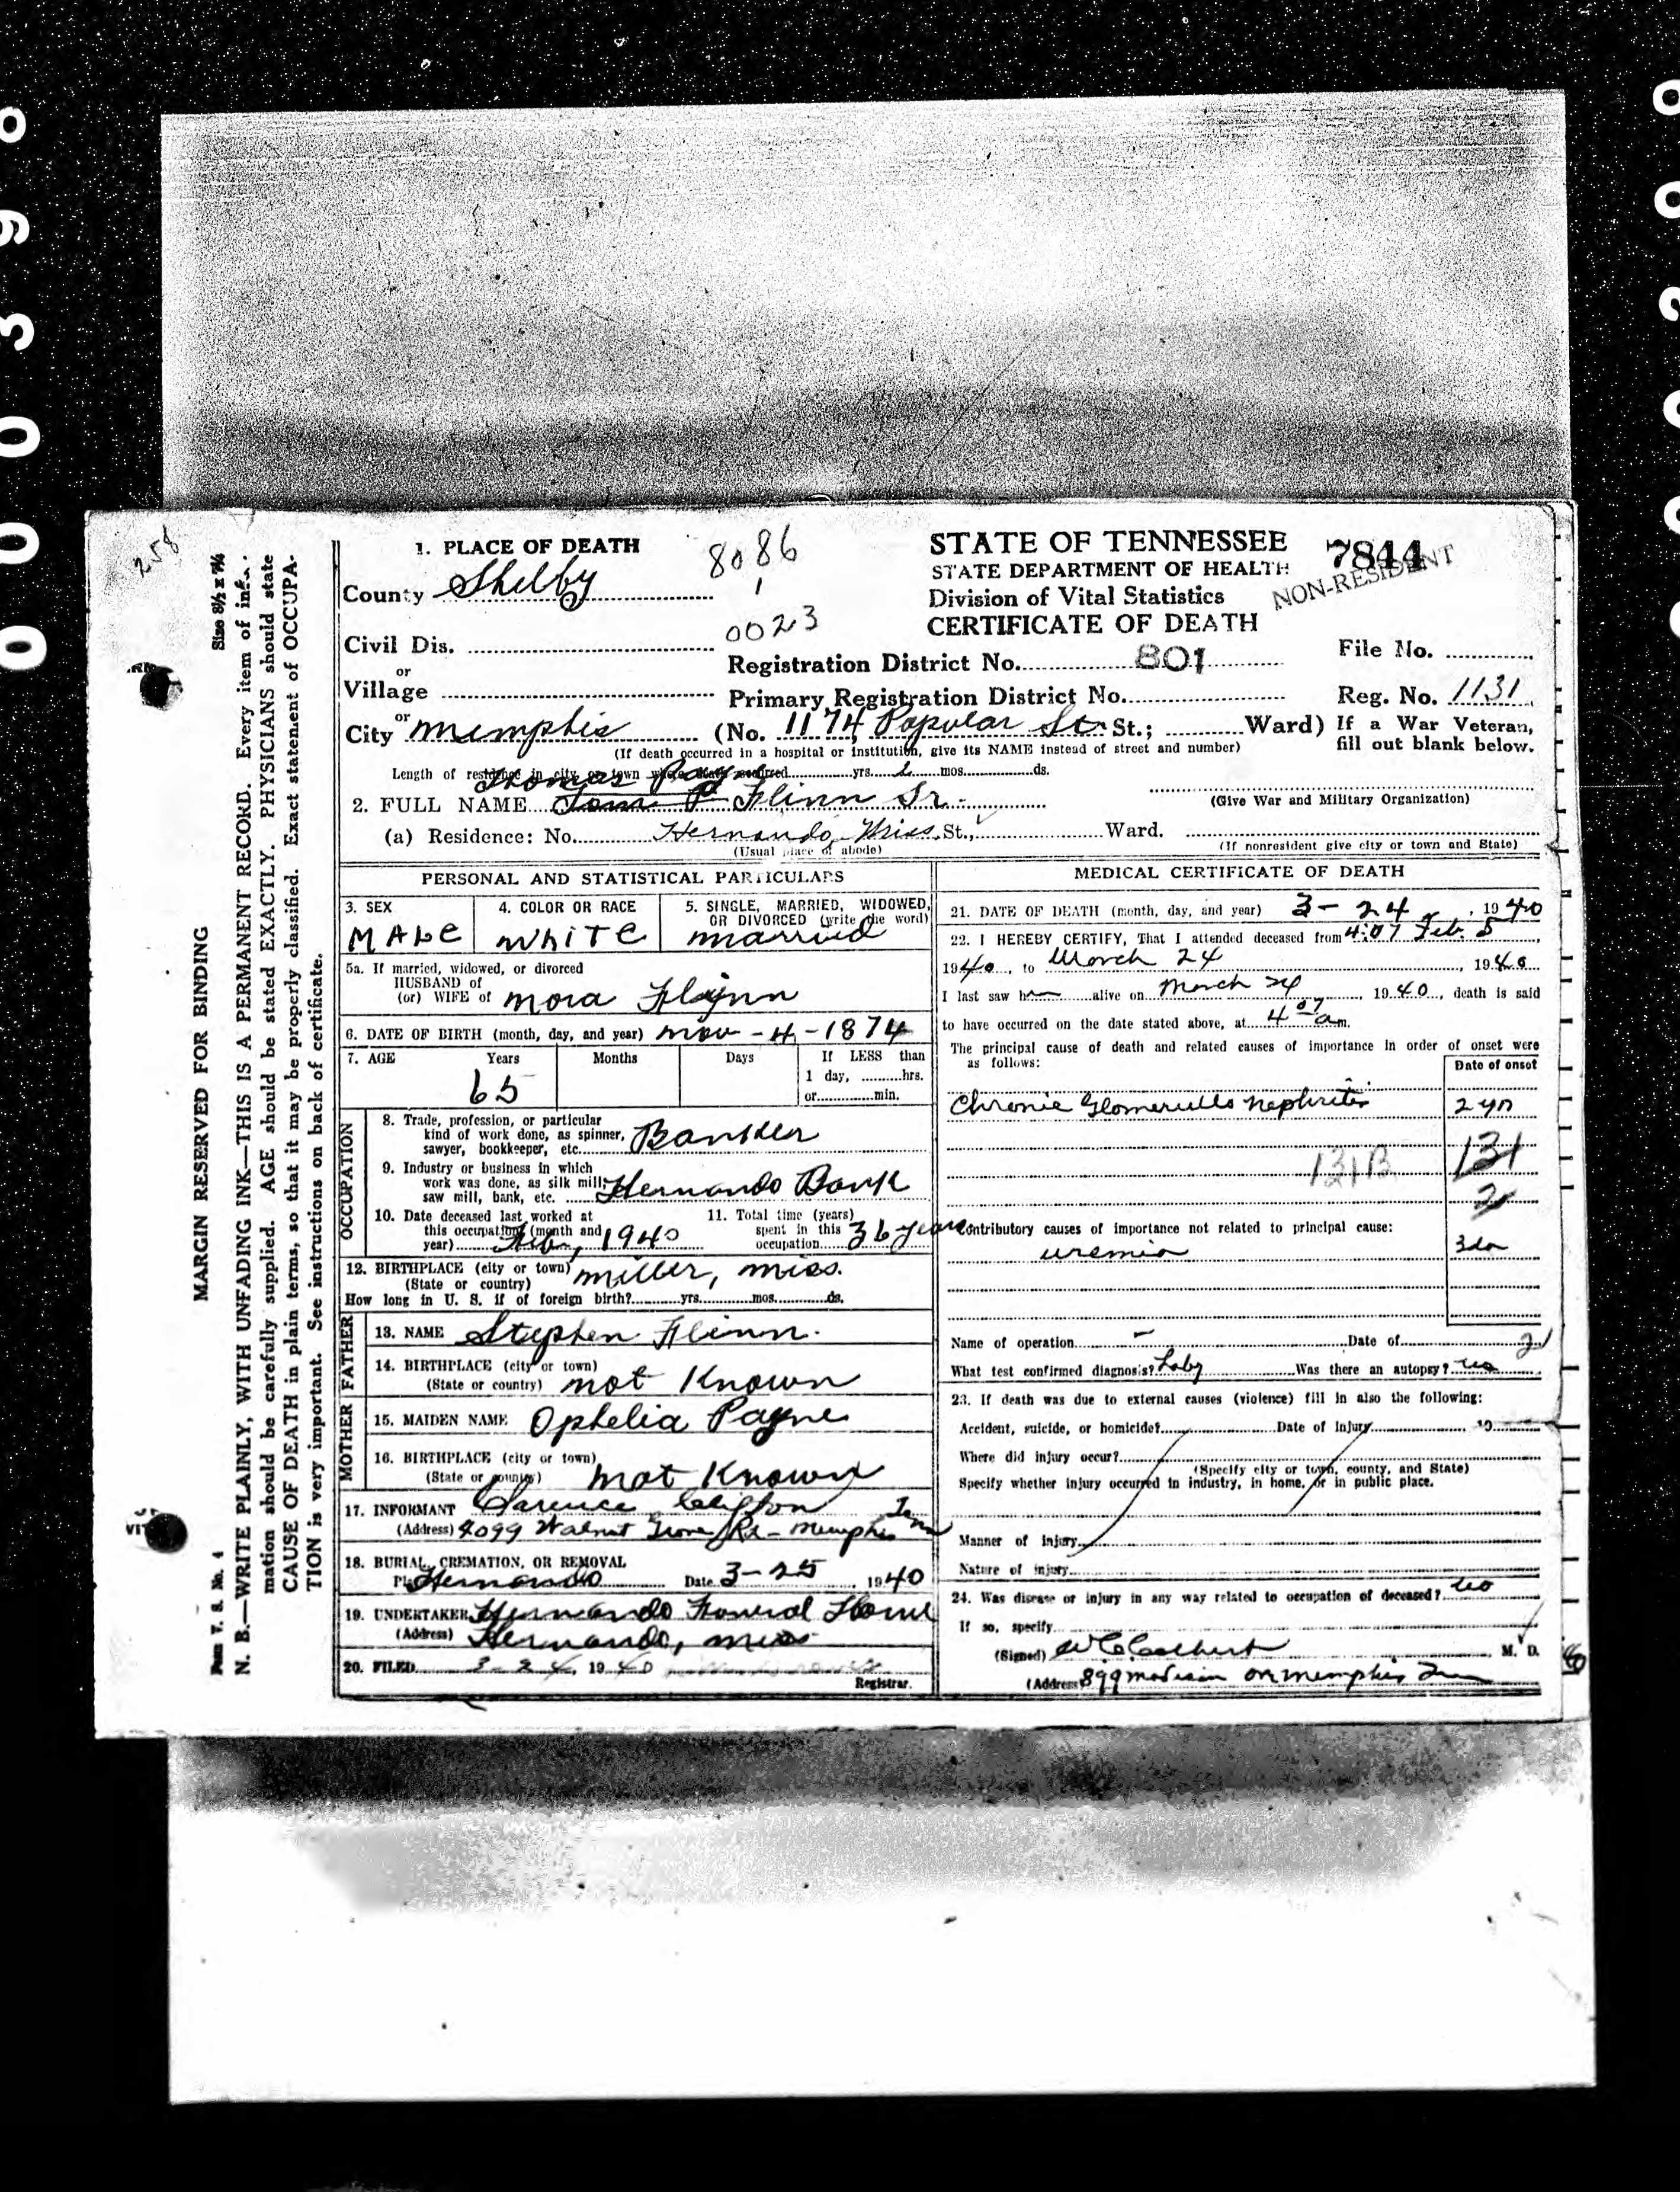 0 0 0 3 9 8
258
MARGIN RESERVED FOR BINDING
N. B.—WRITE PLAINLY, WITH UNFADING INK—THIS IS A PERMANENT RECORD. Every item of
mation should be carefully supplied. AGE should be stated EXACTLY. PHYSICIANS should state
CAUSE OF DEATH in plain terms, so that it may be properly classified. Exact statement of OCCUPA-
TION is very important. See instructions on back of certificate.
Form V. S. No. 4
Size 8½ x 7¼
1. PLACE OF DEATH
County Shelby
8086
1
0023
Civil Dis.
or
Village
or
City Memphis (No. 1174 Popular St. St.; Ward)
(If death occurred in a hospital or institution, give its NAME instead of street and number)
STATE OF TENNESSEE
STATE DEPARTMENT OF HEALTH
Division of Vital Statistics
CERTIFICATE OF DEATH
7844
NON-RESIDENT
Registration District No. 801
File No.
Primary Registration District No.
Reg. No. 1131
If a War Veteran,
fill out blank below.
Length of residence in city or town where death occurred yrs. 2 mos. ds.
Thomas Payne
2. FULL NAME Tom P Flinn Sr.
(Give War and Military Organization)
(a) Residence: No. Hernando, Miss. St., Ward.
(Usual place of abode)
(If nonresident give city or town and State)
PERSONAL AND STATISTICAL PARTICULARS
3. SEX
MALE
4. COLOR OR RACE
White
5. SINGLE, MARRIED, WIDOWED,
OR DIVORCED (write the word)
married
5a. If married, widowed, or divorced
HUSBAND of
(or) WIFE of Mora Flynn
6. DATE OF BIRTH (month, day, and year) Nov - 4 - 1874
7. AGE Years Months Days If LESS than
65 1 day, hrs.
or min.
OCCUPATION
8. Trade, profession, or particular
kind of work done, as spinner,
sawyer, bookkeeper, etc. Bankler
9. Industry or business in which
work was done, as silk mill,
saw mill, bank, etc. Hernando Bank
10. Date deceased last worked at
this occupation (month and
year) Feb, 1940
11. Total time (years)
spent in this
occupation 36 years
12. BIRTHPLACE (city or town) Miller, Miss.
(State or country)
How long in U. S. if of foreign birth? yrs. mos. ds.
FATHER
13. NAME Stephen Flinn.
14. BIRTHPLACE (city or town)
(State or country) not Known
MOTHER
15. MAIDEN NAME Ophelia Payne
16. BIRTHPLACE (city or town)
(State or country) not Known
17. INFORMANT Clarence Clifton
(Address) 4099 Walnut Grove Rd - Memphis Tenn
18. BURIAL, CREMATION, OR REMOVAL
Place Hernando Date 3-25, 1940
19. UNDERTAKER Hernando Funeral Home
(Address) Hernando, Miss
20. FILED 3-24, 1940
Registrar.
MEDICAL CERTIFICATE OF DEATH
21. DATE OF DEATH (month, day, and year) 3-24, 1940
22. I HEREBY CERTIFY, That I attended deceased from 4:07 Feb. 5,
1940, to March 24, 1940
I last saw him alive on March 24, 1940, death is said
to have occurred on the date stated above, at 4 07 a m.
The principal cause of death and related causes of importance in order of onset were
as follows:
Date of onset
Chronic Glomerullo nephritis 2 yrs
131B 131
2
Contributory causes of importance not related to principal cause:
uremia 3da
Name of operation - Date of
2
What test confirmed diagnosis? Laby Was there an autopsy? no
23. If death was due to external causes (violence) fill in also the following:
Accident, suicide, or homicide? Date of injury 19
Where did injury occur?
(Specify city or town, county, and State)
Specify whether injury occurred in industry, in home, or in public place.
Manner of injury
Nature of injury
24. Was disease or injury in any way related to occupation of deceased? no
If so, specify
(Signed) W C Colbert M. D.
(Address) 899 Madison Memphis Tenn